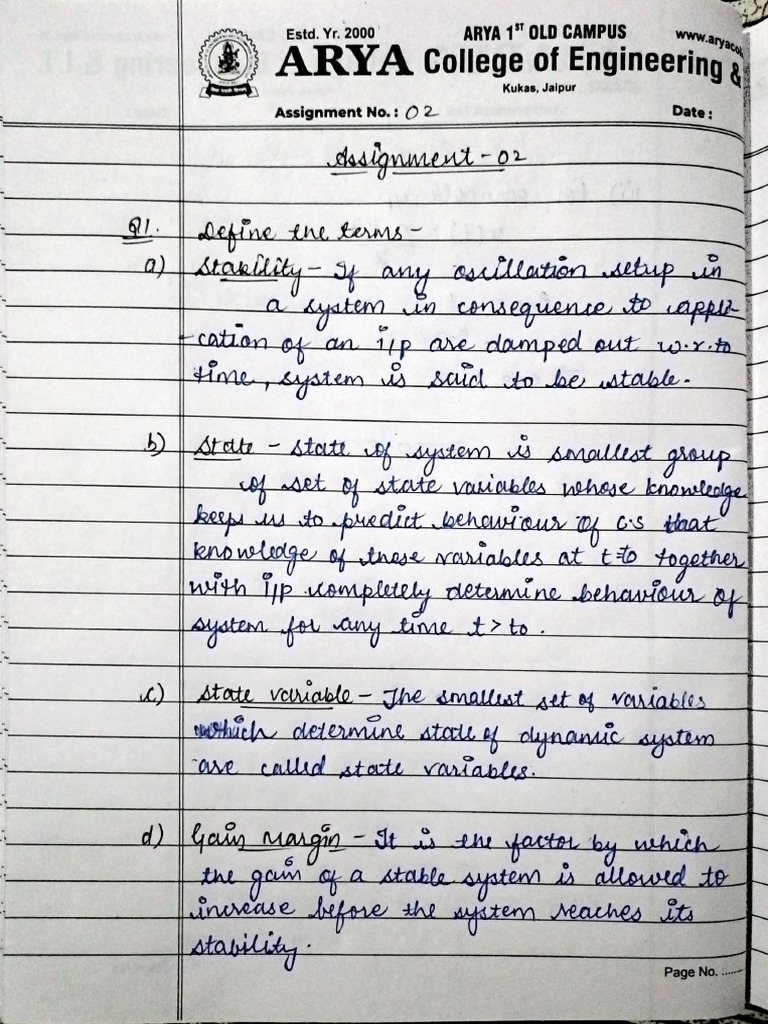 Estd. Yr. 2000
ARYA 1ST OLD CAMPUS
www.aryaco
ARYA College of Engineering &
Kukas, Jaipur
Assignment No. : 02
Date :
Assignment - 02
Q1. Define the terms -
a) Stability - If any oscillation setup in
a system in consequence to appli-
-cation of an i/p are damped out w.r.to
time, system is said to be stable.
b) State - state of system is smallest group
of set of state variables whose knowledge
keeps us to predict behaviour of C.S that
knowledge of these variables at t=to together
with i/p completely determine behaviour of
system for any time t > to.
c) State variable - The smallest set of variables
which determine state of dynamic system
are called state variables.
d) Gain Margin - It is the factor by which
the gain of a stable system is allowed to
increase before the system reaches its
stability.
Page No. ......